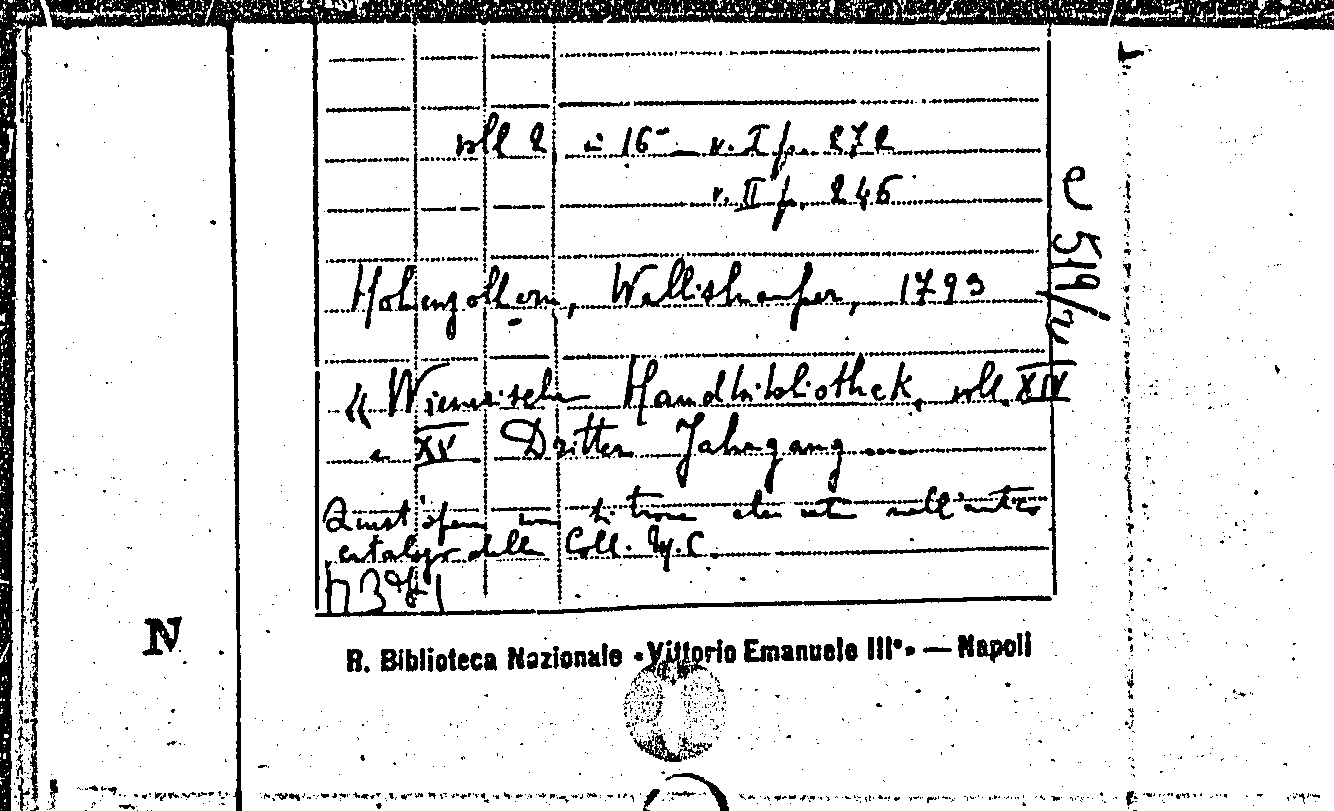 voll 2 in 16° v. I p. 272
v. II p. 246
Hohenzollern, Wallishauser, 1793
« Wienerische Handbibliothek, voll. XIV
e XV Dritter Jahrgang ....
Quest'opera non si trova nell'antico
catalogo della Coll.
e 519/2
N
R. Biblioteca Nazionale «Vittorio Emanuele III°» — Napoli